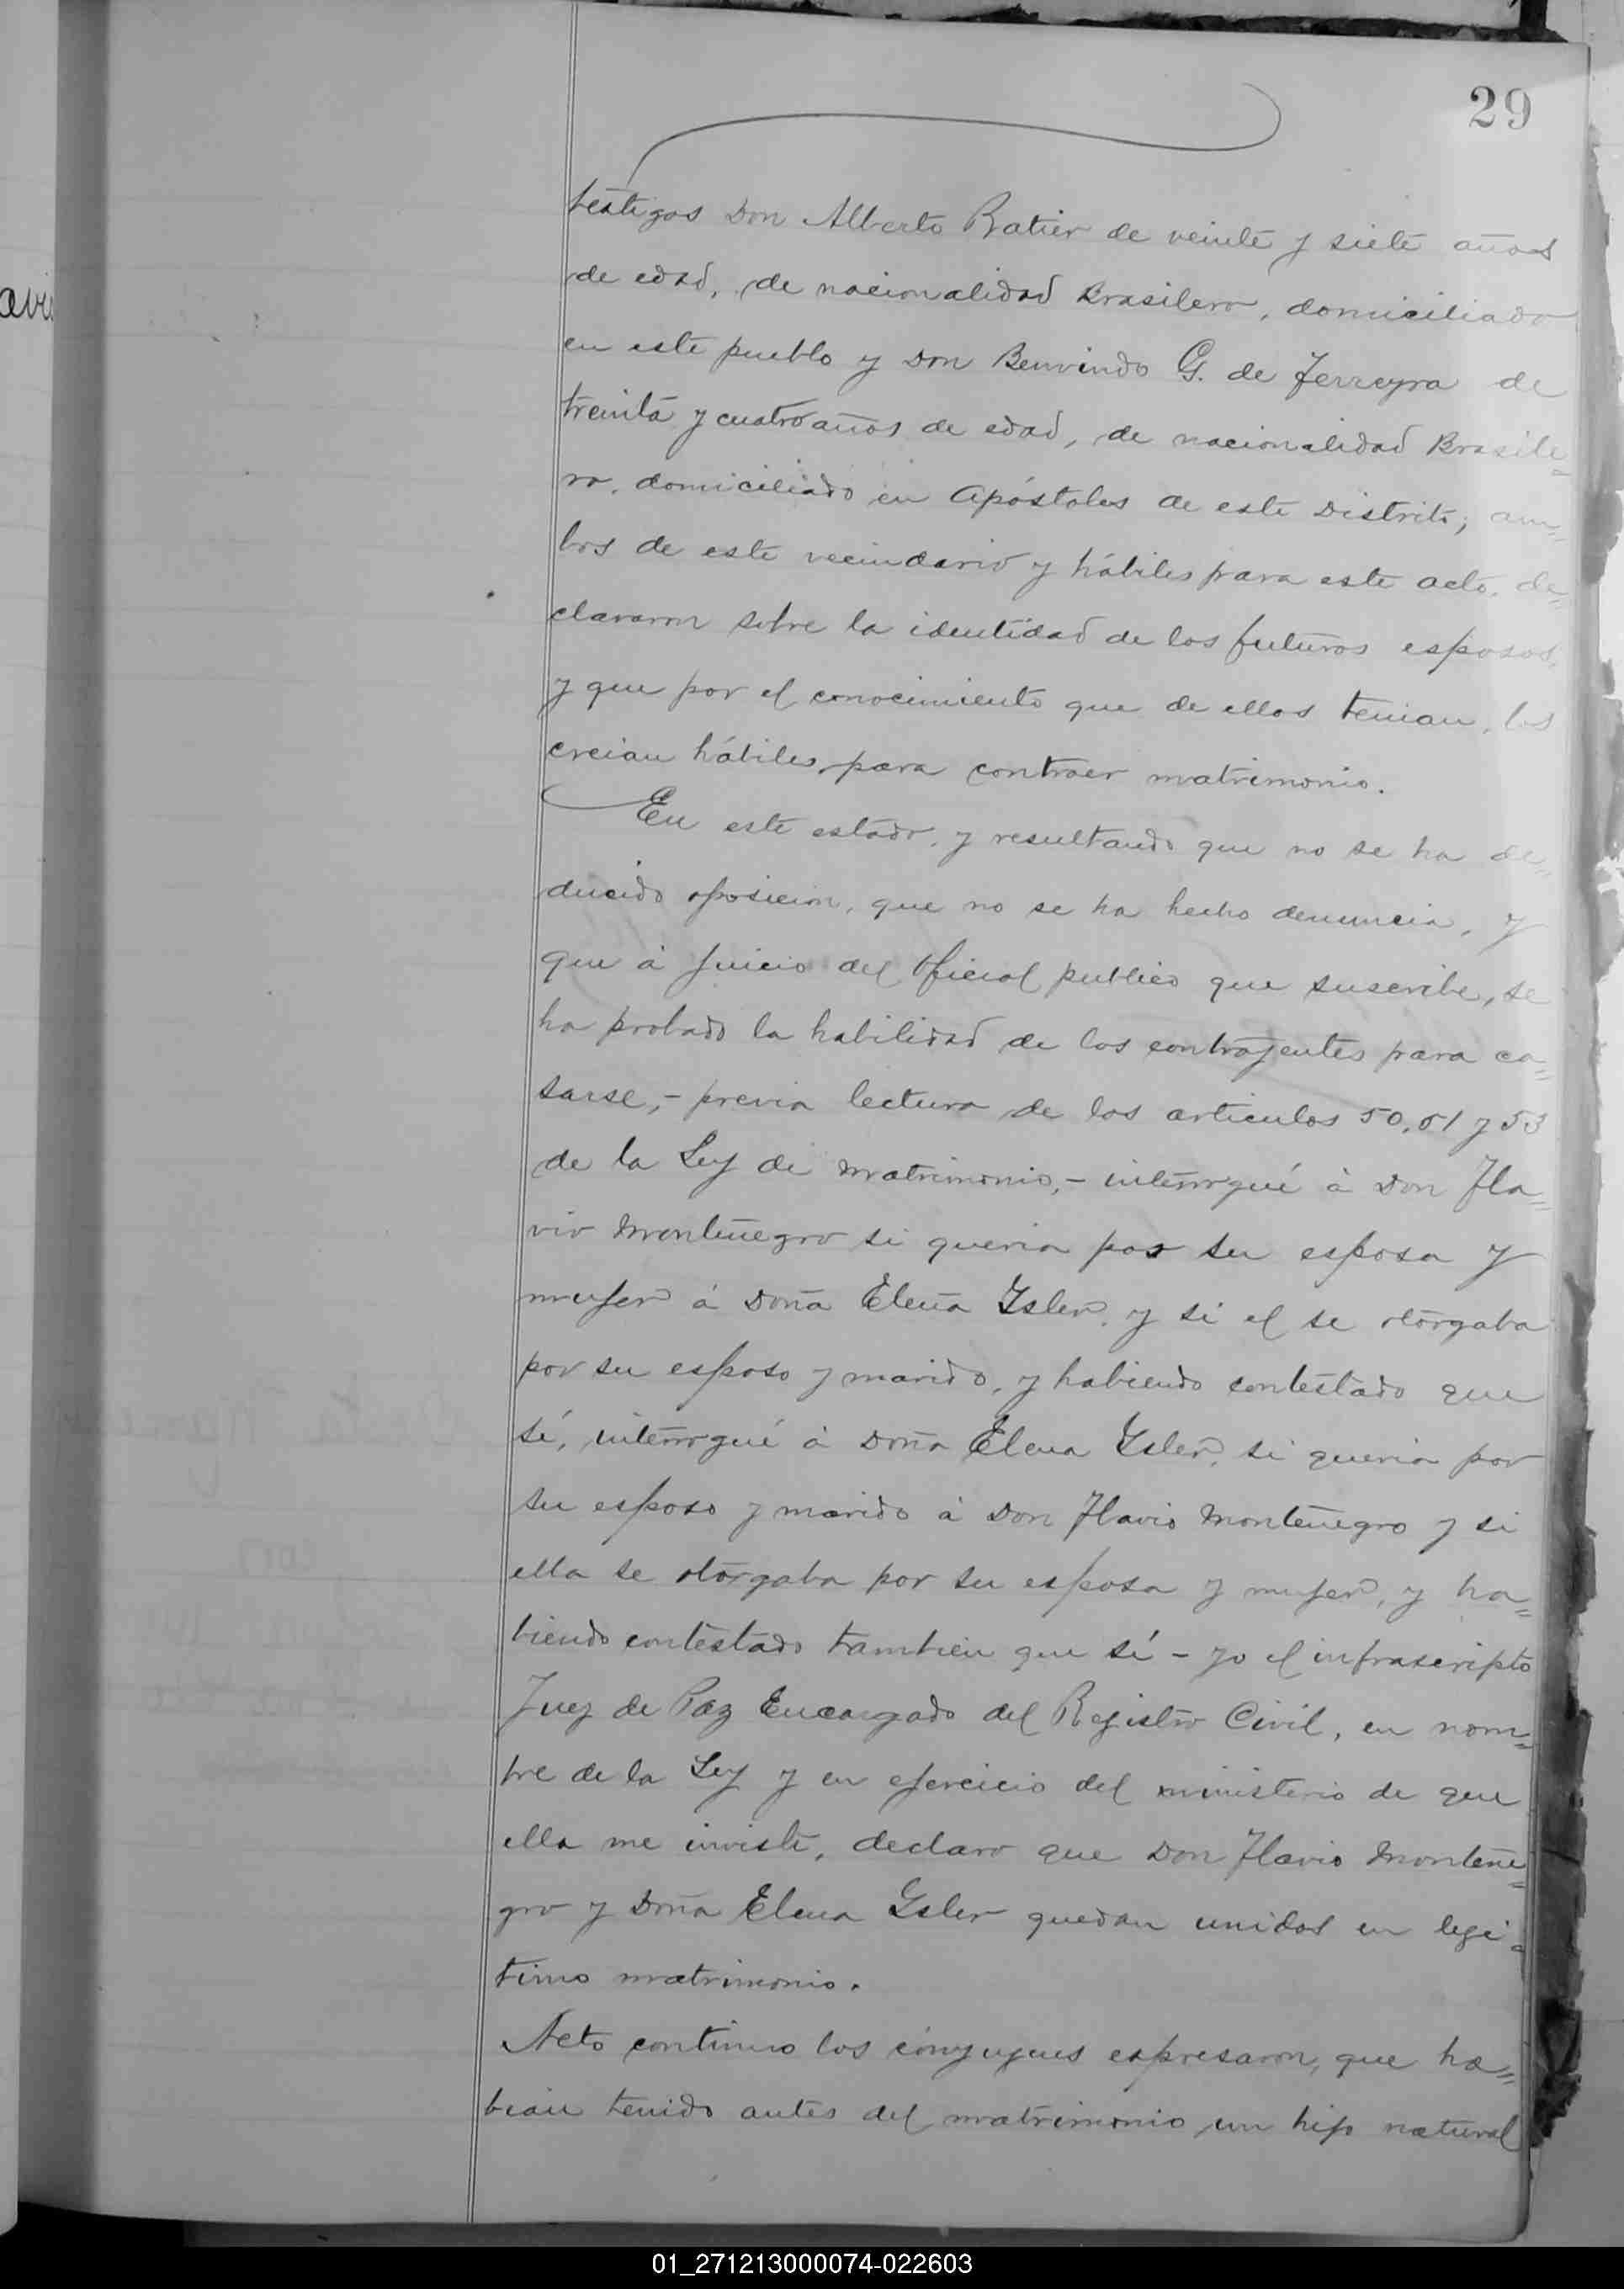 29
testigos Don Alberto Ratier de veinte y siete años
de edad, de nacionalidad Brasilero, domiciliado
en este pueblo y Don Benvindo G. de Ferreyra de
treinta y cuatro años de edad, de nacionalidad Brasile=
ro, domiciliado en Apóstoles de este Distrito; am=
bos de este vecindario y hábiles para este acto, de=
clararon sobre la identidad de los futuros esposos,
y que por el conocimiento que de ellos tenian, los
creian hábiles para contraer matrimonio.
En este estado, y resultando que no se ha de=
ducido oposicion, que no se ha hecho denuncia, y
que á juicio del Oficial publico que suscribe, se
ha probado la habilidad de los contrajentes para ca=
sarse,- previa lectura de los articulos 50, 51 y 53
de la Ley de matrimonio,- interrogué á Don Fla=
vio Montenegro si queria por su esposa y
mujer á Doña Elena Ysler, y si el se otorgaba
por su esposo y marido, y habiendo contestado que
sí, interrogué á Doña Elena Ysler, si queria por
su esposo y marido á Don Flavio Montenegro y si
ella se otorgaba por su esposa y mujer, y ha=
biendo contestado tambien que sí - yo el infrascripto
Juez de Paz Encargado del Registro Civil, en nom=
bre de la Ley y en ejercicio del ministerio de que
ella me inviste, declaro que Don Flavio Montene=
gro y Doña Elena Ysler quedan unidos en legi=
timo matrimonio.
Acto continuo los conyugues espresaron, que ha=
bian tenido antes del matrimonio un hijo natural
01_271213000074-022603